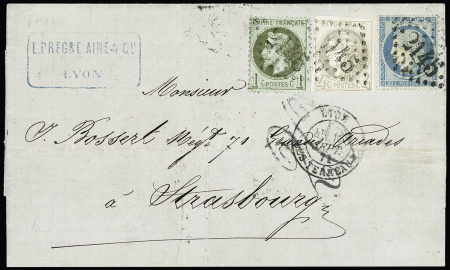 L. PREGRE AINÉ & Cie
LYON
EMPIRE FRANÇAIS
1 C POSTES C 1
REPUB
POSTES
2145
2145
Monsieur
J. Bossert Négt 70 Grandes Arcades
LYON
LES-TERREAUX
2
à Strasbourg